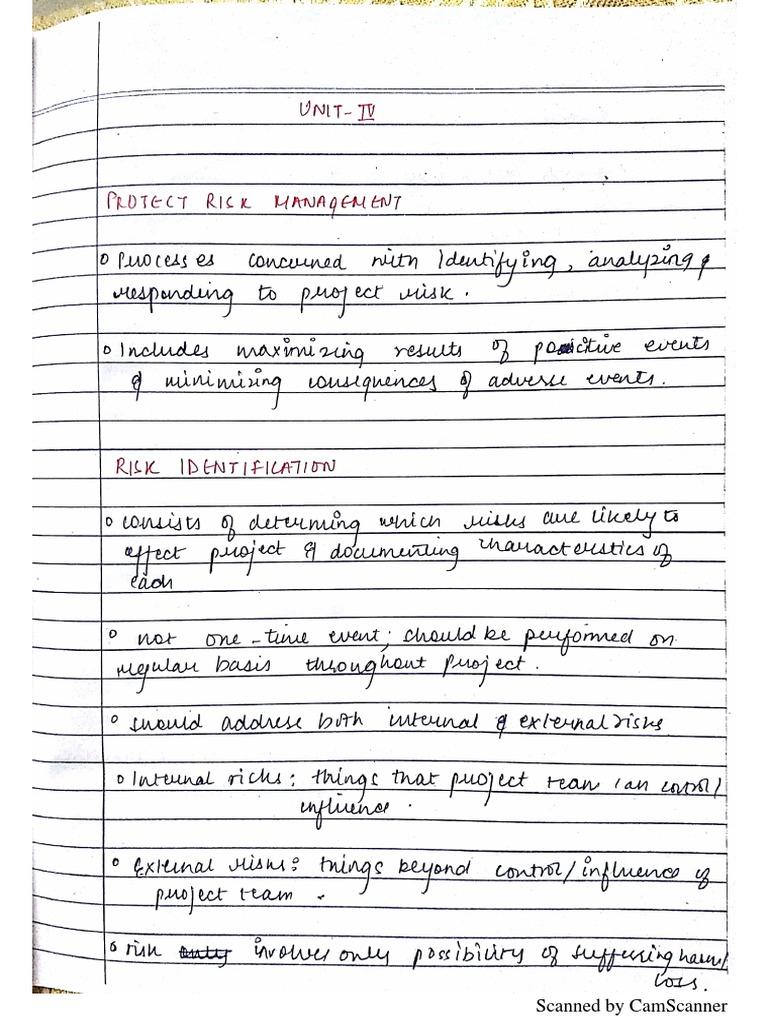 UNIT-IV
PROJECT RISK MANAGEMENT
o Processes concerned with identifying, analyzing &
responding to project risk.
o Includes maximizing results of positive events
& minimizing consequences of adverse events.
RISK IDENTIFICATION
o consists of determing which risks are likely to
effect project & documenting characteristics of
each
o not one-time event; should be performed on
regular basis throughout project.
o should address both internal & external risks
o Internal risks: things that project team can control/
influence.
o External risks: things beyond control/influence of
project team.
o risk only involves only possibility of suffering harm/
loss.
Scanned by CamScanner